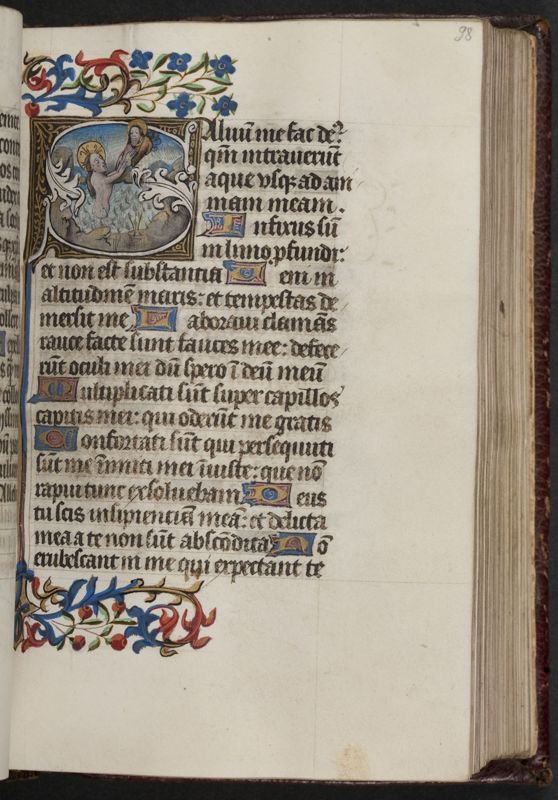 98
Saluū me fac de9
qm̄ intrauerūt
aque vsqꝫ ad am
mam meam .
Infixus sū
in limo ꝓfundi :
et non est substantia Veni in
altitudinē maris : et tempestas de
mersit me Laboraui clamās
rauce facte sunt fauces mee : defece
rūt oculi mei dū spero ī deū meū
Multiplicati sūt super capillos
capitis mei : qui oderūt me gratis
Confortati sūt qui persequuti
sūt me īimici mei īiuste : que nō
rapui tunc exsoluebam Deus
tu scis insipientiā meā : et delicta
mea a te non sūt abscōdita Nō
erubescant in me qui expectant te